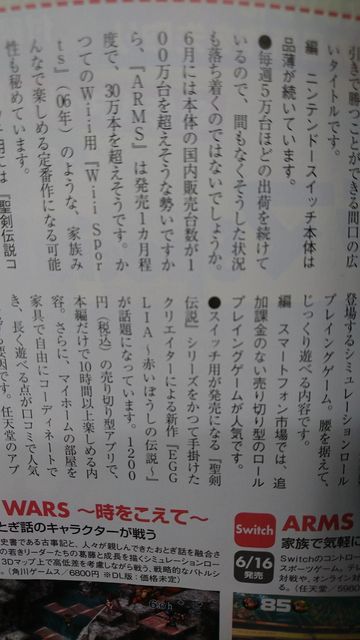 引き、勝つことができる間口の広
いタイトルです。
編 ニンテンドースイッチ本体は
品薄が続いています。
●毎週5万台ほどの出荷を続けて
いるので、間もなくそうした状況
も落ち着くのではないでしょうか。
6月には本体の国内販売台数が1
00万台を超えそうな勢いですか
ら、『ARMS』は発売1カ月程
度で、30万本を超えそうです。か
つてのWii用『Wii Spor
ts』(06年)のような、家族み
んなで楽しめる定番作になる可能
性も秘めています。
月には『聖剣伝説コ
登場するシミュレーションロール
プレイングゲーム。腰を据えて、
じっくり遊べる内容です。
編 スマートフォン市場では、追
加課金のない売り切り型のロール
プレイングゲームが人気です。
●スイッチ用が発売になる『聖剣
伝説』シリーズをかつて手掛けた
クリエイターによる新作『EGG
LIA〜赤いぼうしの伝説〜』
が話題になっています。1200
円(税込)の売り切り型アプリで、
本編だけで10時間以上楽しめる内
容。さらに、マイホームの部屋を
家具で自由にコーディネートで
き、長く遊べる点が口コミで人気
要因です。任天堂のアプ
WARS 〜時をこえて〜
とぎ話のキャラクターが戦う
史書である古事記と、人々が親しんできたおとぎ話を融合さ
の若きリーダーたちの葛藤と成長を描くシミュレーション
3Dマップ上で高低差を考慮しながら戦う、戦略的なバトルシ
。(角川ゲームス/6800円 ※DL版:価格未定)
Switch
6/16
発売
ARMS
家族で気軽に
Switchのコントロー
スポーツゲーム。テレ
対戦や、オンライン対
る。(任天堂/5980
85